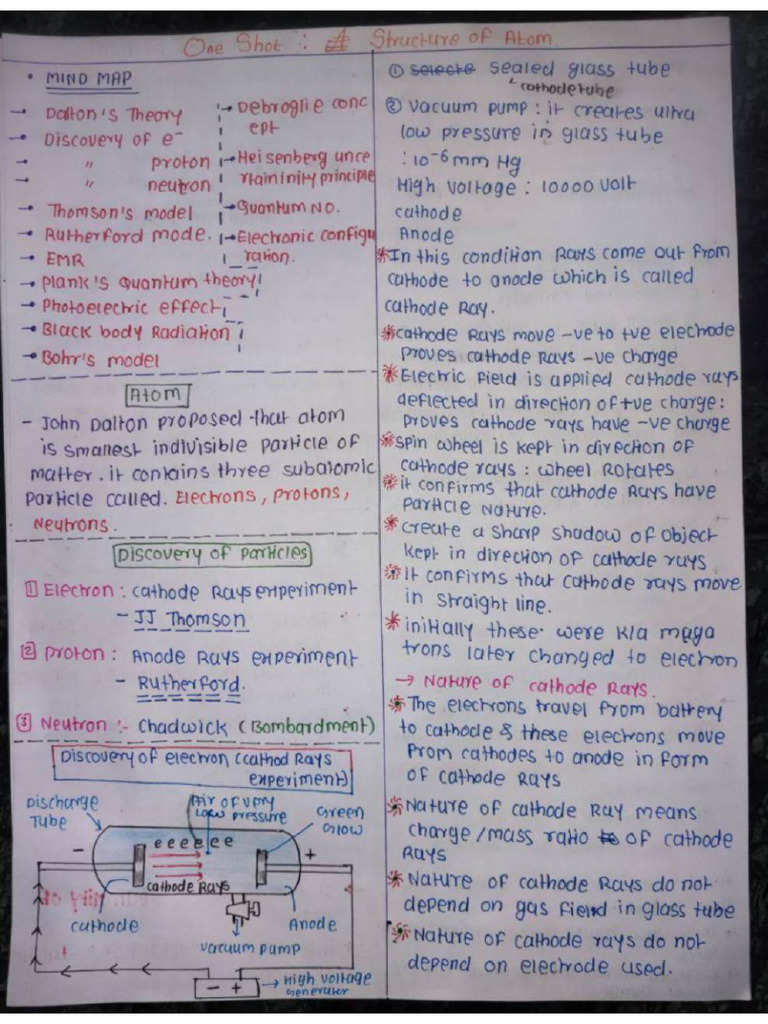 One Shot : Structure of Atom
• MIND MAP
→ Dalton's Theory
→ Discovery of e⁻
→ " proton
→ " neutron
→ Thomson's model
→ Rutherford mode.
→ EMR
→ plank's Quantum theory
→ Photoelectric effect
→ Black body Radiation
→ Bohr's model
→ Debroglie conc
ept
→ Heisenberg unce
rtaininity principle
→ Quantum No.
→ Electronic configu
ration.
Atom
- John Dalton proposed that atom
is smallest indivisible particle of
matter. it contains three subatomic
particle called. Electrons, protons,
Neutrons.
Discovery of particles
1 Electron : cathode Rays experiment
- JJ Thomson
2 proton : Anode Rays experiment
- Rutherford.
3 Neutron :- Chadwick (Bombardment)
Discovery of electron (cathod Rays
experiment)
Discharge
Tube
Air of very
low pressure
Green
Glow
- e e e e e e +
cathode Rays
cathode
Anode
vacuum pump
- +
→ High voltage
Generator
① selecte sealed glass tube
cathode tube
② vacuum pump : it creates ultra
low pressure in glass tube
: 10⁻⁶ mm Hg
High voltage : 10000 volt
cathode
Anode
* In this condition Rays come out from
cathode to anode which is called
cathode Ray.
* cathode Rays move -ve to +ve electrode
proves cathode rays -ve charge
* Electric field is applied cathode rays
deflected in direction of +ve charge:
proves cathode rays have -ve charge
* spin wheel is kept in direction of
cathode rays : wheel Rotates
* it confirms that cathode Rays have
particle Nature.
* create a sharp shadow of object
kept in direction of cathode rays
* It confirms that cathode rays move
in straight line.
* initially these were k/a mega
trons later changed to electron
→ Nature of cathode Rays.
* The electrons travel from battery
to cathode & these electrons move
from cathodes to anode in form
of cathode Rays
* Nature of cathode Ray means
charge/mass ratio of cathode
Rays
* Nature of cathode Rays do not
depend on gas field in glass tube
* Nature of cathode rays do not
depend on electrode used.